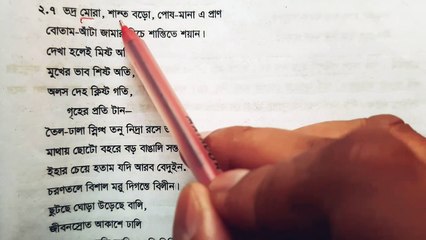 ২.৭ ভদ্র মোরা, শান্ত বড়ো, পোষ-মানা এ প্রাণ
বোতাম-আঁটা জামার নিচে শান্তিতে শয়ান।
দেখা হলেই মিষ্ট অতি
মুখের ভাব শিষ্ট অতি,
অলস দেহ ক্লিষ্ট গতি,
গৃহের প্রতি টান—
তৈল-ঢালা স্নিগ্ধ তনু নিদ্রা রসে
মাথায় ছোটো বহরে বড় বাঙালি
ইহার চেয়ে হতাম যদি আরব বেদুইন
চরণতলে বিশাল মরু দিগন্তে বিলীন।
ছুটছে ঘোড়া উড়েছে বালি,
জীবনস্রোত আকাশে ঢালি